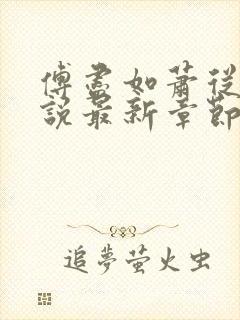 傅盡如蕭從
說最新章節
追夢螢火虫